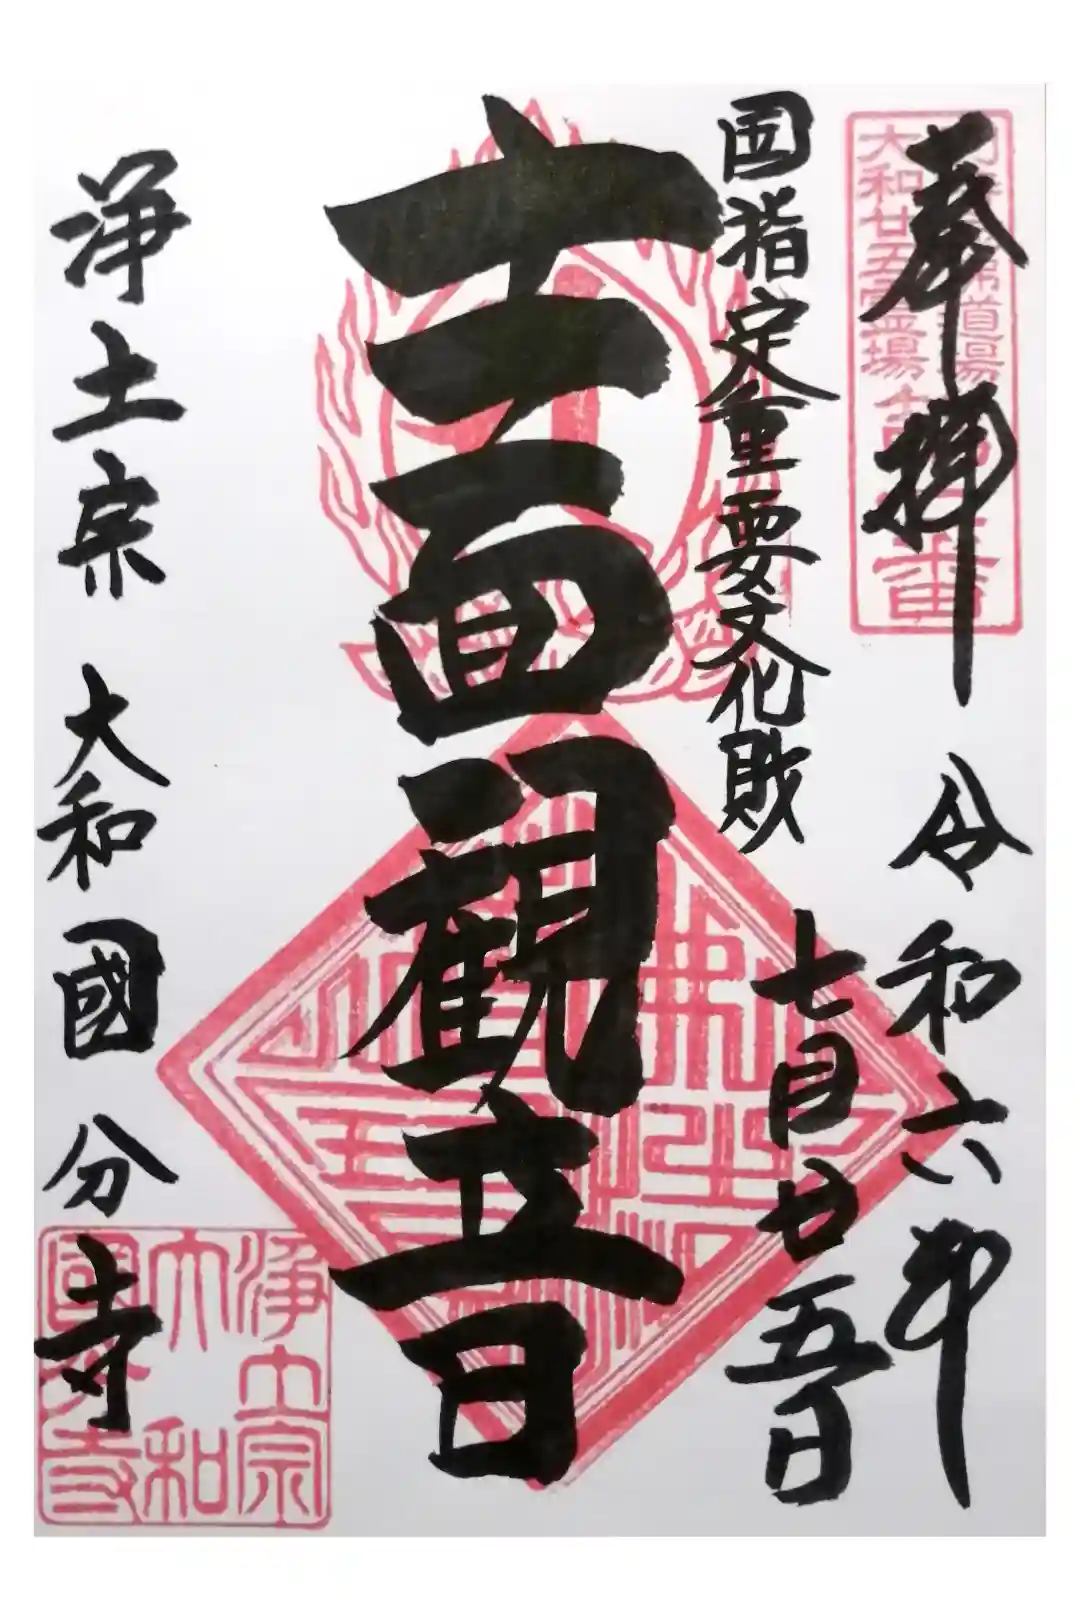 奉拝
令和六年
七月廿五日
国指定重要文化財
十一面観音
浄土宗 大和國分寺
大和廿五霊場
浄土宗
大和
國分寺